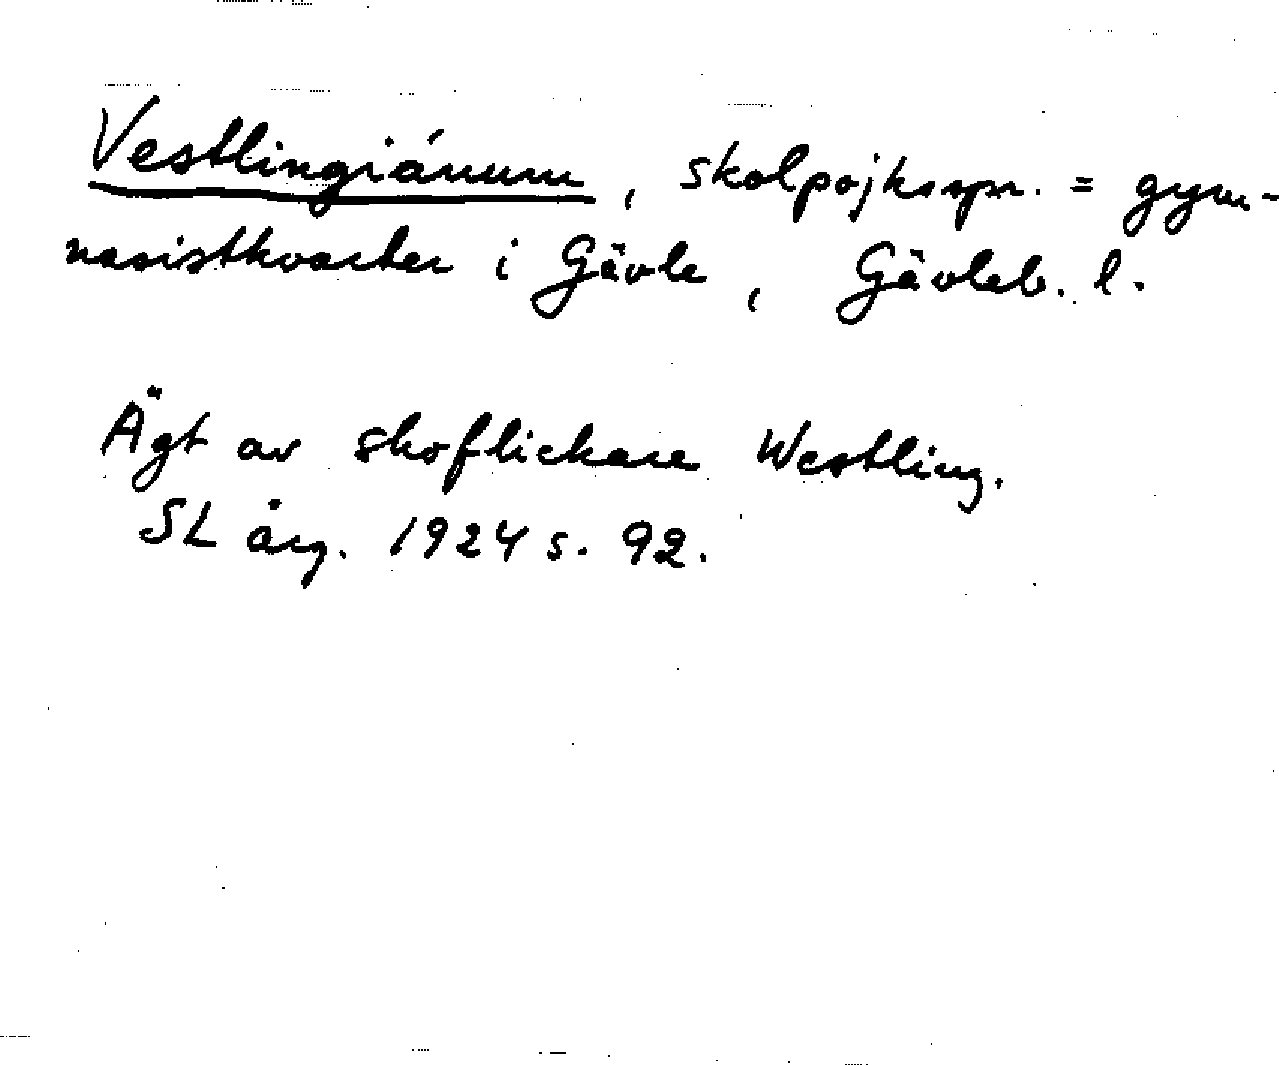 Vestlingiánum, skolpojksspr. = gym-
nasistkvarter i Gävle, Gävleb. l.
Ägt av skoflickare Westling.
SL årg. 1924 s. 92.